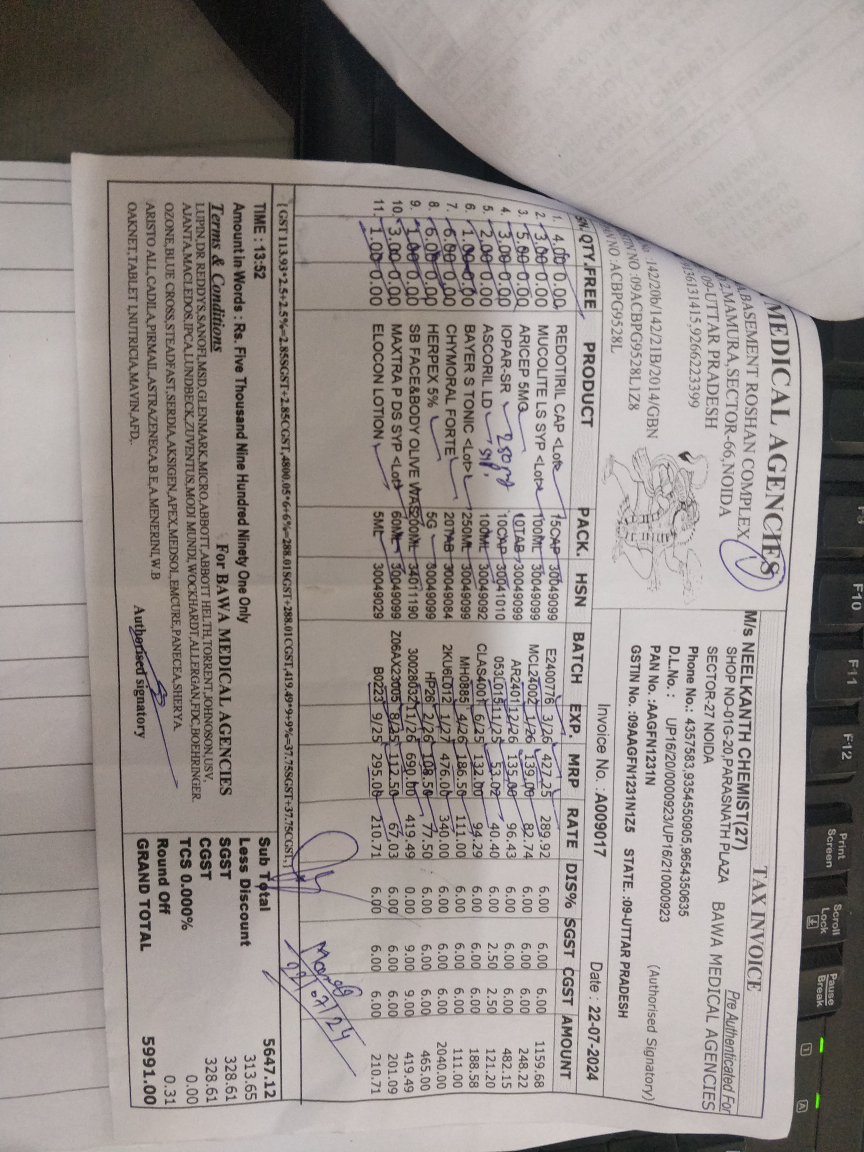 MEDICAL AGENCIES
BASEMENT ROSHAN COMPLEX
MAMURA, SECTOR-66, NOIDA
09-UTTAR PRADESH
36131415,9266223399
142/20b/142/21B/2014/GBN
NO :09ACBPG9528L1Z8
NO :ACBPG9528L
TAX INVOICE
M/s NEELKANTH CHEMIST(27)
SHOP NO-01G-20,PARASNATH PLAZA
SECTOR-27 NOIDA
Phone No.: 4357583,9354550905,9654350635
D.L.No.: UP16/20/0000923/UP16/210000923
PAN No. :AAGFN1231N
GSTIN No. :09AAGFN1231N1Z5 STATE. :09-UTTAR PRADESH
Pre Authenticated For
BAWA MEDICAL AGENCIES
(Authorised Signatory)
Invoice No. : A009017 Date : 22-07-2024
SN. QTY. FREE PRODUCT PACK. HSN BATCH EXP. MRP RATE DIS% SGST CGST AMOUNT
1. 4.00 0.00 REDOTIRIL CAP <Lot> 15CAP 30049099 E2400776 3/26 427.25 289.92 6.00 6.00 6.00 1159.68
2. 3.00 0.00 MUCOLITE LS SYP <Lot> 100ML 30049099 MCL24002 1/26 139.00 82.74 6.00 6.00 6.00 248.22
3. 5.00 0.00 ARICEP 5MG 10TAB 30049099 AR2401 12/26 135.00 96.43 6.00 6.00 6.00 482.15
4. 3.00 0.00 IOPAR-SR 250mg 10CAP 30041010 11/25 53.02 40.40 6.00 2.50 2.50 121.20
5. 2.00 0.00 ASCORIL LD syp. 100ML 30049092 CLAS4001 6/25 132.00 94.29 6.00 6.00 6.00 188.58
6. 1.00 0.00 BAYER S TONIC <Lot> 250ML 30049099 MH0885 4/26 186.50 111.00 6.00 6.00 6.00 111.00
7. 6.00 0.00 CHYMORAL FORTE 20TAB 30049084 2KU6L012 1/27 476.00 340.00 6.00 6.00 6.00 2040.00
8. 6.00 0.00 HERPEX 5% 5G 30049099 HP26 2/26 108.50 77.50 6.00 6.00 6.00 465.00
9. 1.00 0.00 SB FACE&BODY OLIVE WAS 200ML 34011190 30028032 11/26 690.00 419.49 0.00 9.00 9.00 419.49
10. 3.00 0.00 MAXTRA P DS SYP <Lot> 60ML 30049099 Z06AX23005 8/25 112.50 67.03 6.00 6.00 6.00 201.09
11. 1.00 0.00 ELOCON LOTION 5ML 30049029 B0223 9/25 295.00 210.71 6.00 6.00 6.00 210.71
22/07/24
[ GST 113.93*2.5+2.5%=2.85SGST+2.85CGST,4800.05*6+6%=288.01SGST+288.01CGST,419.49*9+9%=37.75SGST+37.75CGST,]
TIME : 13:52
Amount in Words : Rs. Five Thousand Nine Hundred Ninety One Only
Terms & Conditions
For BAWA MEDICAL AGENCIES
LUPIN,DR REDDYS,SANOFI,MSD,GLENMARK,MICRO,ABBOTT,ABBOTT HELTH,TORRENT,JOHNOSON,USV,
AJANTA,MACLEDOS,IPCA,LUNDBECK,ZUVENTUS,MODI MUNDI,WOCKHARDT,ALLERGAN,FDC,BOEHRINGER
OZONE,BLUE CROSS,STEADFAST,SERDIA,AKSIGEN,APEX,MEDSOL,EMCURE,PANECEA,SHERYA
ARISTO ALL,CADILA,PIRMAIL,ASTRAZENECA,B.E,A.MENERINI,W.B
OAKNET,TABLET I,NUTRICIA,MAVIN,AFD,
Authorised signatory
Sub Total 5647.12
Less Discount 313.65
SGST 328.61
CGST 328.61
TCS 0.000% 0.00
Round Off 0.31
GRAND TOTAL 5991.00
F10
F11
F12
Print
Screen
Scroll
Lock
Pause
Break
1
A